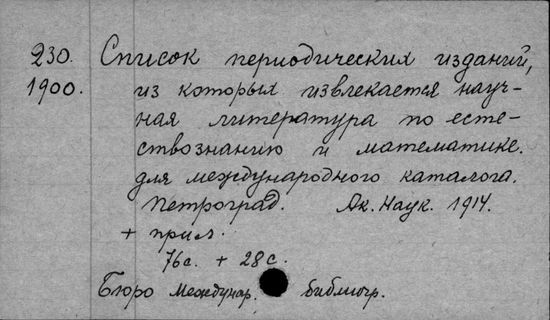 230. Список периодических изданий,
1900. из которых извлекается науч-
ная литература по есте-
ствознанию и математике.
для международного каталога.
Петроград. Ак. Наук. 1914.
+ прил.
76с. + 28с.
Бюро Междунар. библиогр.